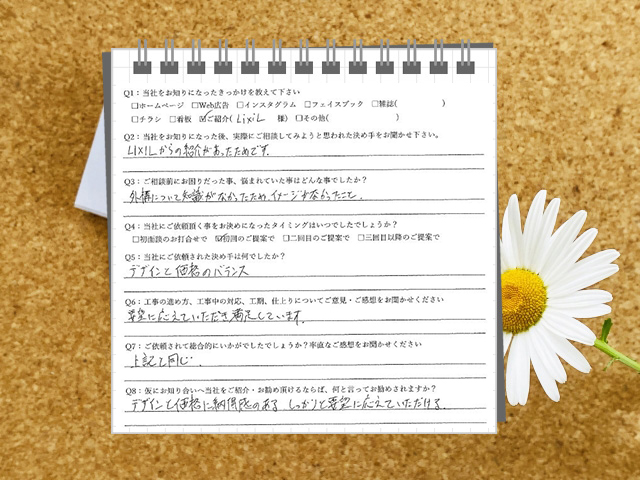 Q1：当社をお知りになったきっかけを教えて下さい
□ホームページ □Web広告 □インスタグラム □フェイスブック □雑誌( )
□チラシ □看板 ☑ご紹介( LIXIL 様) □その他( )
Q2：当社をお知りになった後、実際にご相談してみようと思われた決め手をお聞かせ下さい。
LIXILからの紹介があったためです。
Q3：ご相談前にお困りだった事、悩まれていた事はどんな事でしたか？
外構について知識がなかったため、イメージがなかったこと。
Q4：当社にご依頼頂く事をお決めになったタイミングはいつでしたでしょうか？
□初面談のお打合せで ☑初回のご提案で □二回目のご提案で □三回目以降のご提案で
Q5：当社にご依頼された決め手は何でしたか？
デザインと価格のバランス
Q6：工事の進め方、工事中の対応、工期、仕上りについてご意見・ご感想をお聞かせください
要望に応えていただき満足しています。
Q7：ご依頼されて総合的にいかがでしたでしょうか？率直なご感想をお聞かせください
上記と同じ。
Q8：仮にお知り合いへ当社をご紹介・お勧め頂けるならば、何と言ってお勧めされますか？
デザインと価格に納得感のある しっかりと要望に応えていただける。